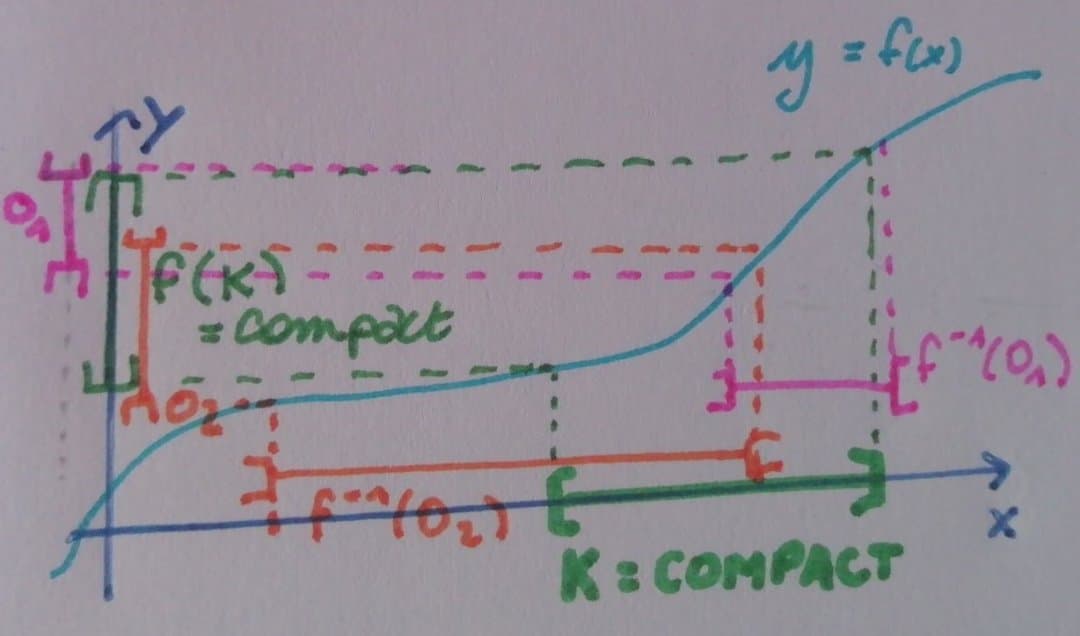 y = f(x)
y
O₁
f(K)
= compact
O₂
f⁻¹(O₁)
f⁻¹(O₂)
x
K = COMPACT